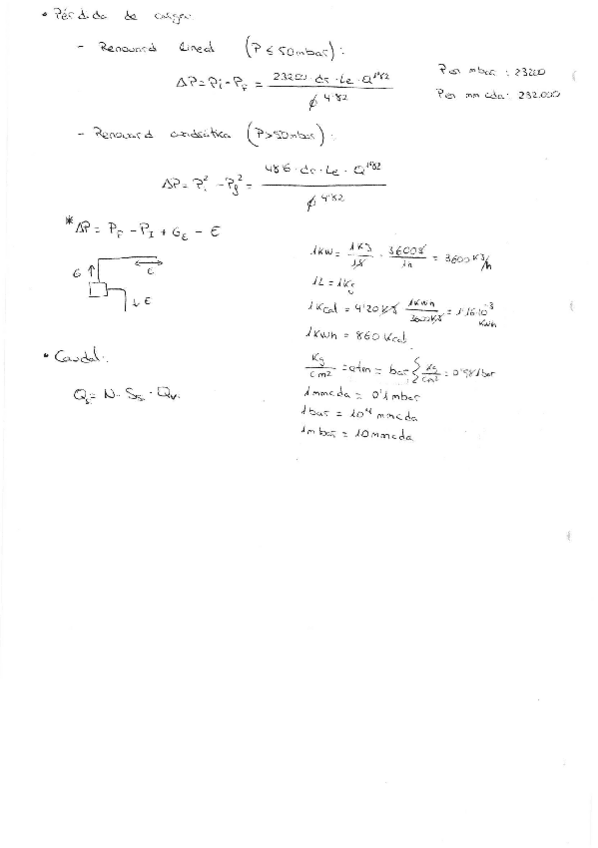 • Pérdida de carga:
- Renouard Lineal (P ≤ 50mbar):
ΔP = Pi - PF = 23200 · dr · Le · Q^1'82 / ϕ^4'82
Por mbar : 23200
Por mm cda: 232.000
- Renouard cuadrática (P>50mbar):
ΔP = Pi² - Pf² = 48'6 · dr · Le · Q^1'82 / ϕ^4'82
*ΔP = PF - PI + GE - E
G ↑ C
↓ E
1KW = 1KJ/1s · 3600s/1h = 3600 KJ/h
1L = 1Kg
1Kcal = 4'20 KJ · 1KWh/3600KJ = 1'16·10^-3 KWh
1KWh = 860 Kcal
Kg/cm² = atm = bar { Kg/cm² = 0'981bar
1mmcda = 0'1mbar
1bar = 10^4 mmcda
1mbar = 10mmcda
• Caudal:
Qs = N · Ss · Qv.